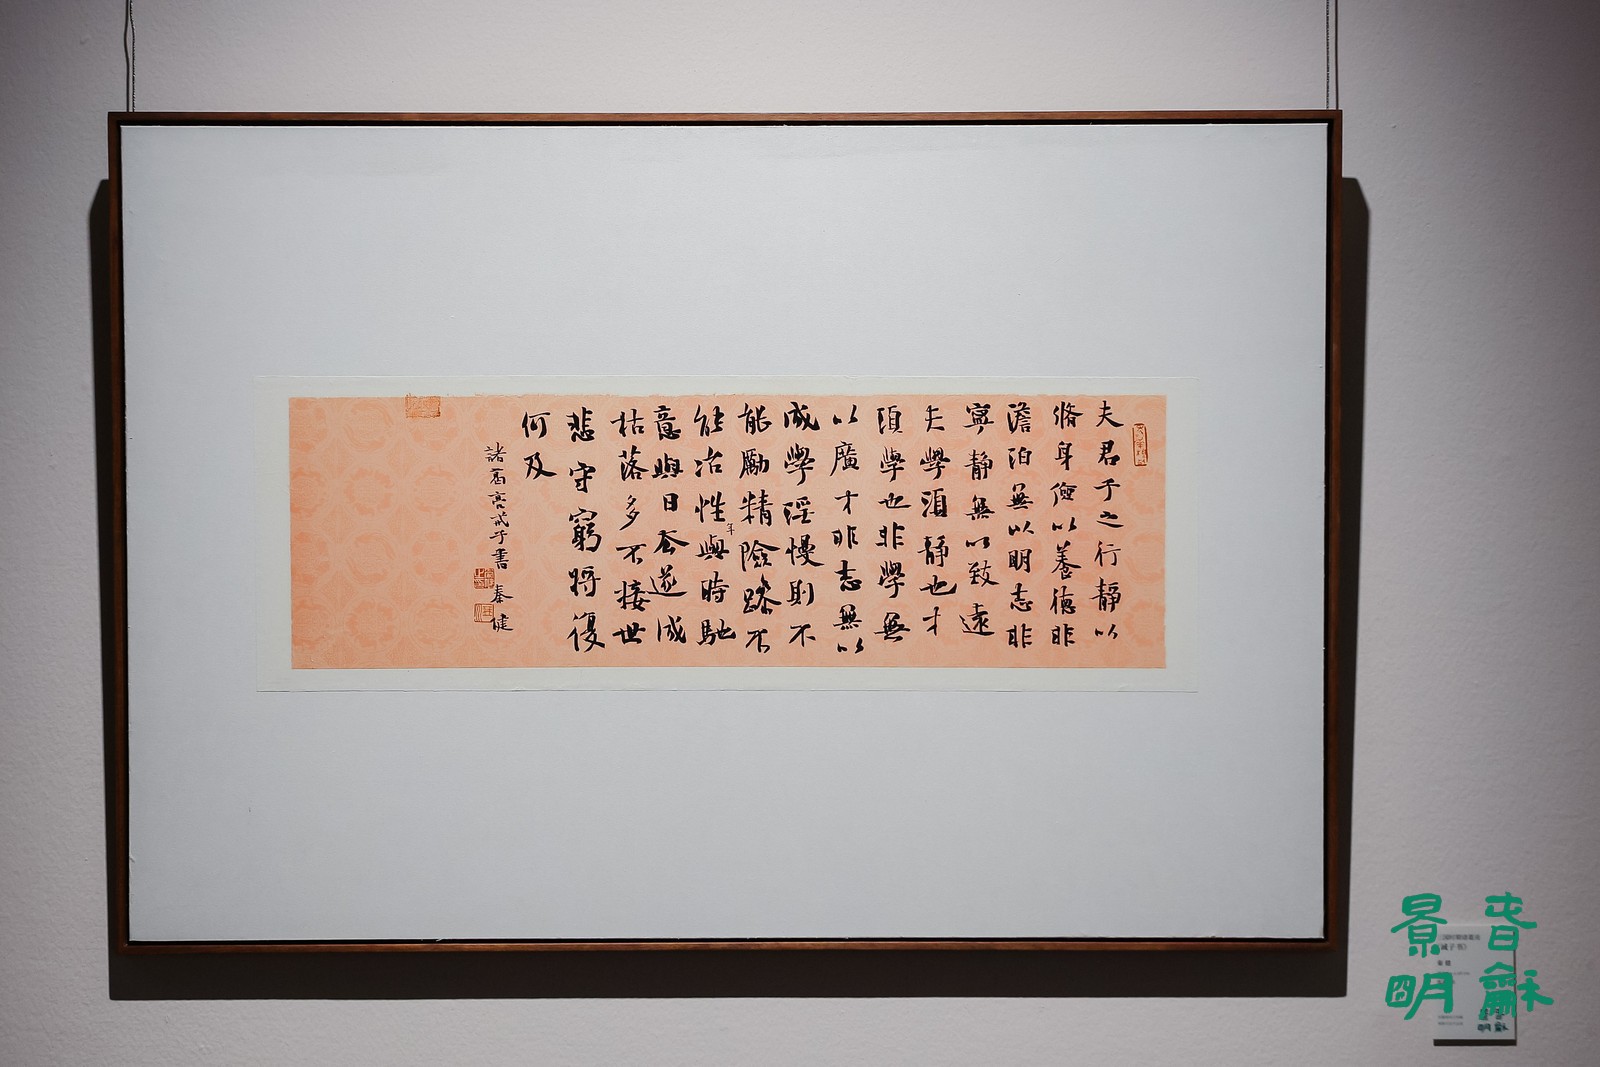 夫君子之行靜以
脩身儉以養德非
澹泊無以明志非
寧靜無以致遠
夫學須靜也才
須學也非學無
以廣才非志無以
成學淫慢則不
能勵精險躁不
能冶性年與時馳
意與日去遂成
枯落多不接世
悲守窮將復
何及
諸葛亮戒子書 秦健
旾龢
景明